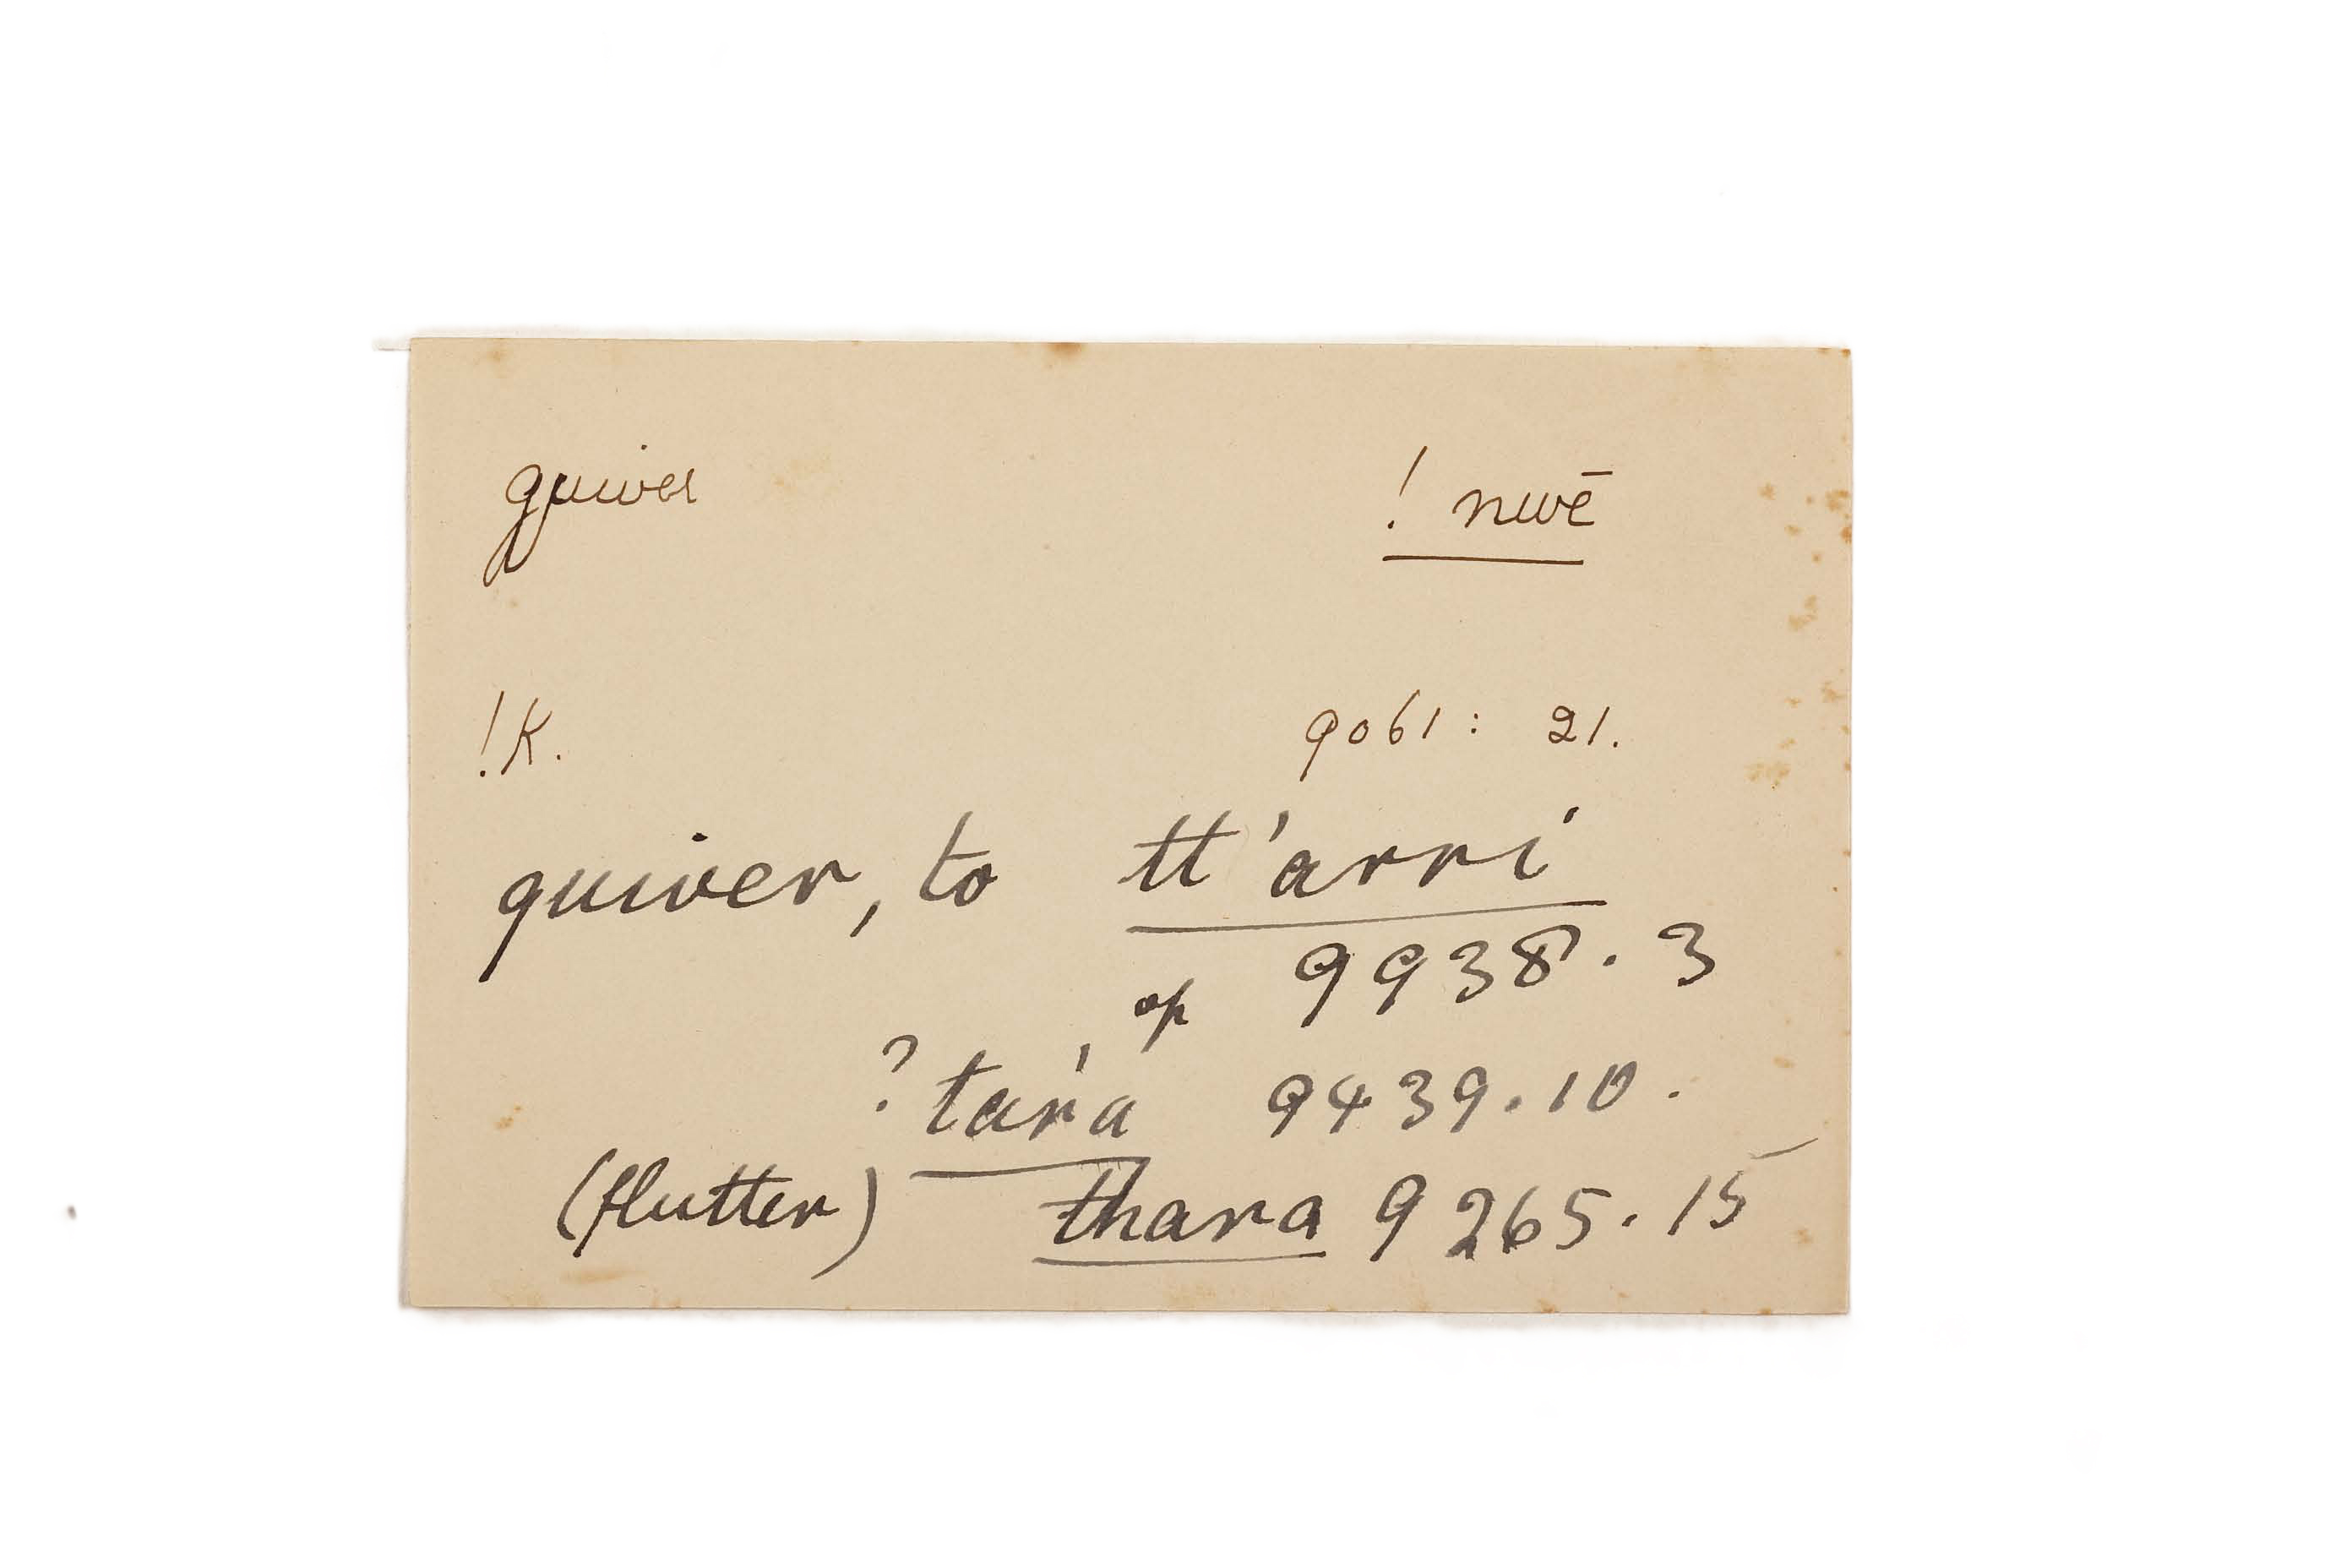 quiver ! nwē
!K. 9061: 21.
quiver, to tt'arri
9938.3
? tárá 9439.10.
(flutter) thara 9265.15